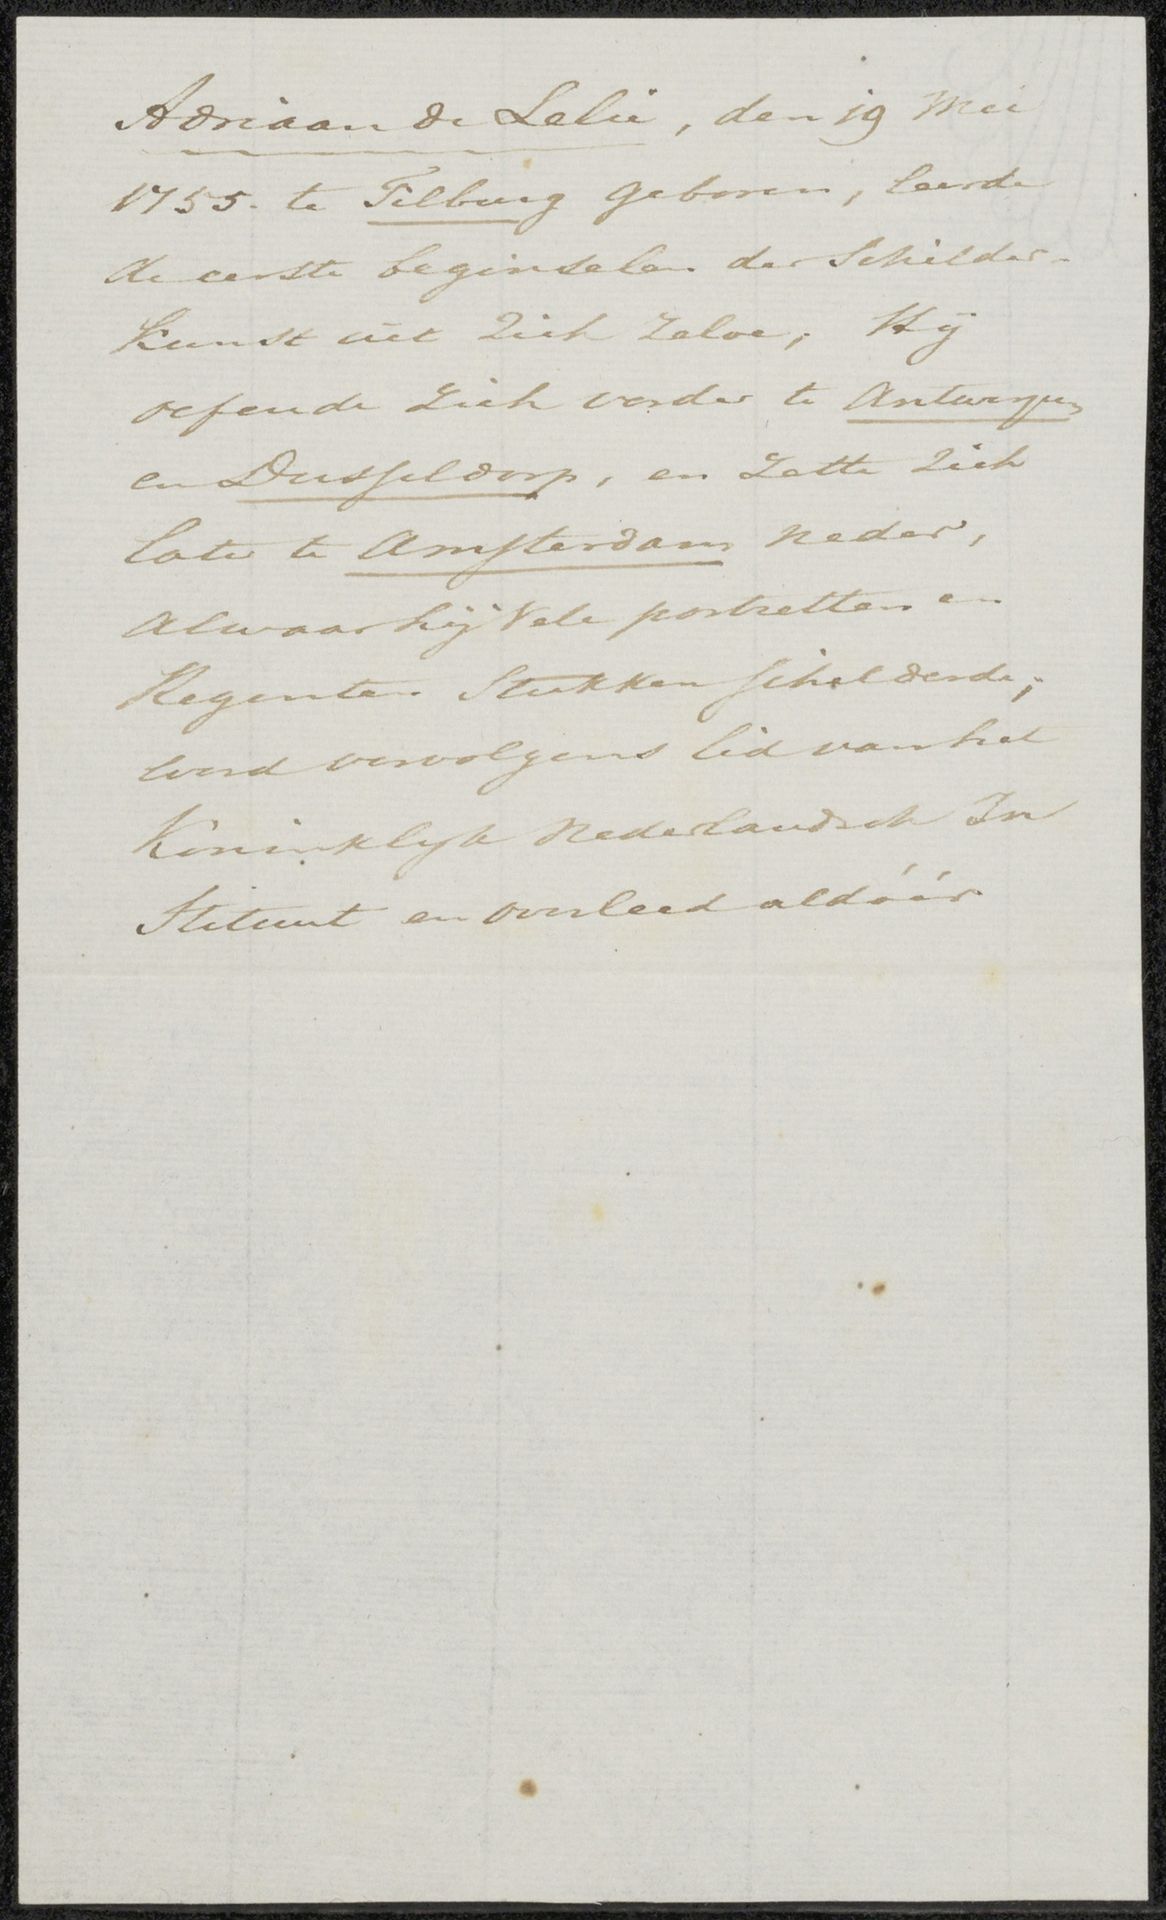 Adriaan de Lelie, den 19 Mei
1755. te Tilburg geboren, leerde
de eerste beginselen der Schilder-
Kunst uit Zich Zelve; Hij
oefende Zich verder te Antwerpen
en Dusseldorp, en Zette Zich
later te Amsterdam neder,
alwaar hij Vele portretten en
Regenten Stukken schilderde;
werd vervolgens lid van het
Koninklyk Nederlandsch In
Stituut en overleed aldáár